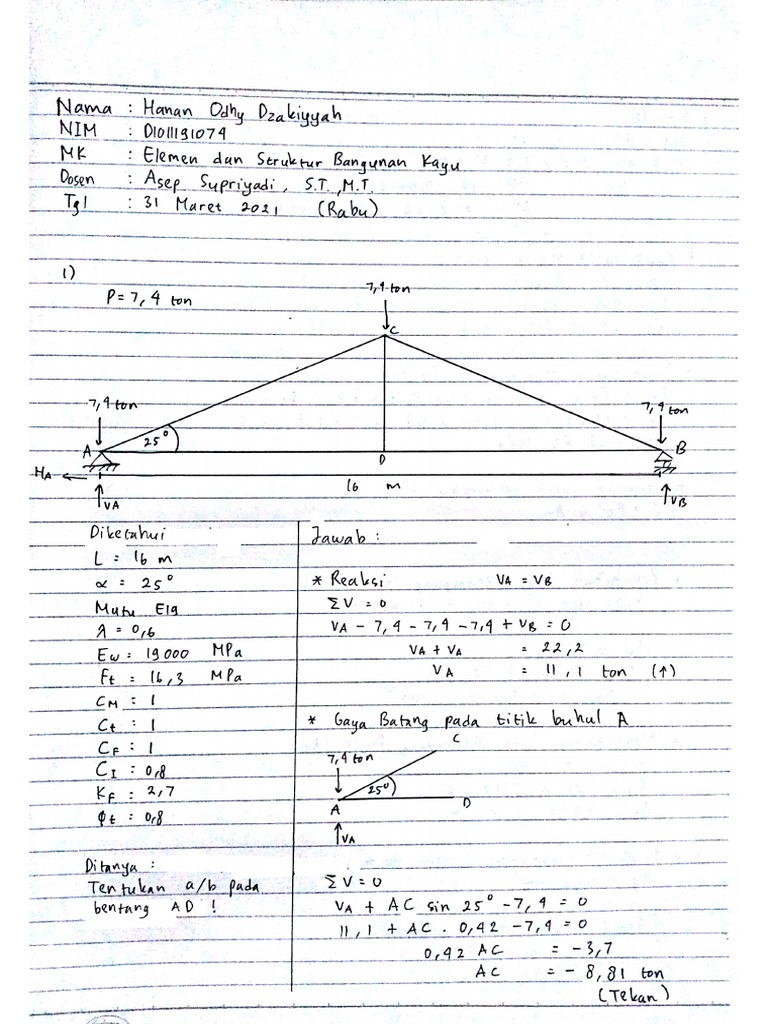 Nama : Hanan Odhy Dzakiyyah
NIM : D1011191074
MK : Elemen dan Struktur Bangunan Kayu
Dosen : Asep Supriyadi, S.T., M.T.
Tgl : 31 Maret 2021 (Rabu)
1)
P = 7,4 ton
7,4 ton
C
7,4 ton
7,4 ton
A
25°
D
B
HA
16 m
VA
VB
Diketahui
L = 16 m
α = 25°
Mutu E19
λ = 0,6
Ew = 19000 MPa
Ft = 16,3 MPa
CM = 1
Ct = 1
CF = 1
CI = 0,8
KF = 2,7
φt = 0,8
Ditanya :
Tentukan a/b pada
bentang AD !
Jawab :
* Reaksi VA = VB
ΣV = 0
VA - 7,4 - 7,4 - 7,4 + VB = 0
VA + VA = 22,2
VA = 11,1 ton (↑)
* Gaya Batang pada titik buhul A
C
7,4 ton
25°
A
D
VA
ΣV = 0
VA + AC sin 25° - 7,4 = 0
11,1 + AC . 0,42 - 7,4 = 0
0,42 AC = -3,7
AC = - 8,81 ton
(Tekan)